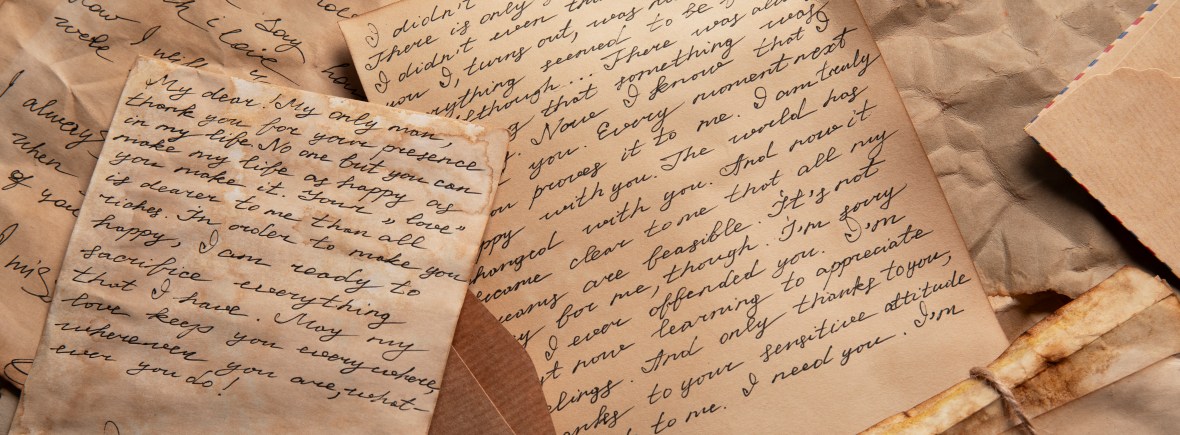 now
were
I will
h i love
Say
how
I always
when
of you
I
mis
My dear. My only man,
thank you for your presence
in my life. No one but you can
make my life as happy as
you make it. Your "love"
is dearer to me than all
riches. In order to make you
happy, I am ready to
sacrifice everything
that I have. May my
love keeps you everywhere,
wherever you are, what-
ever you do!
I didn't
There is only
I didn't even
you I, turns out, was
rything seemed to be
although... There was
that something was
Now I know that I
you. Every moment next
proves it to me. I am truly
ppy with you. The world has
hanged with you. And now it
ecome clear to me that all my
reams are feasible. It's not
y for me, though. I'm sorry
I ever offended you. I'm
t now learning to appreciate
elings. And only thanks to you,
anks to your sensitive attitude
to me. I need you. I'm